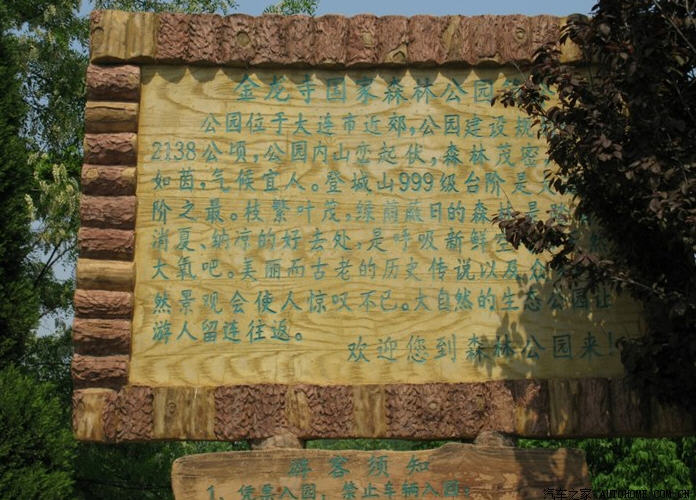 金龙寺国家森林公园简介
公园位于大连市近郊,公园建设规
2138公顷,公园内山峦起伏,森林茂密
如茵,气候宜人。登城山999级台阶是
阶之最。枝繁叶茂,绿荫蔽日的森林是
消夏、纳凉的好去处,是呼吸新鲜空
大氧吧。美丽而古老的历史传说以及众
然景观会使人惊叹不已。大自然的生态公园让
游人留连往返。
欢迎您到森林公园来!
游客须知
1、凭票入园,禁止车辆入园。
汽车之家 AUTOHOME.COM.CN